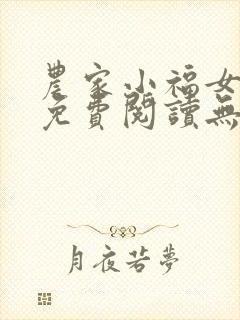 農家小福女
免費閱讀無
月夜若夢